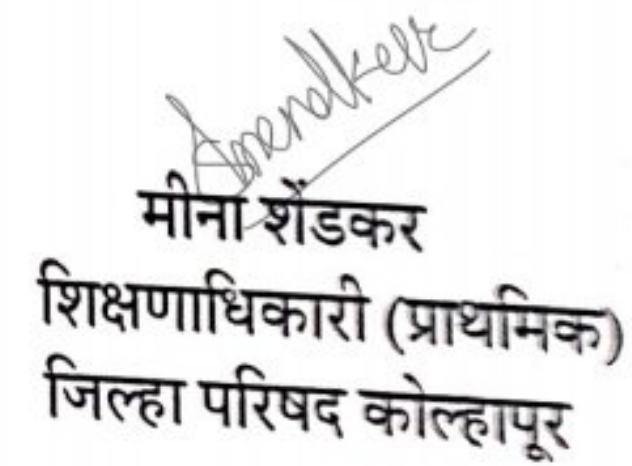 मीना शेंडकर
शिक्षणाधिकारी (प्राथमिक)
जिल्हा परिषद कोल्हापूर